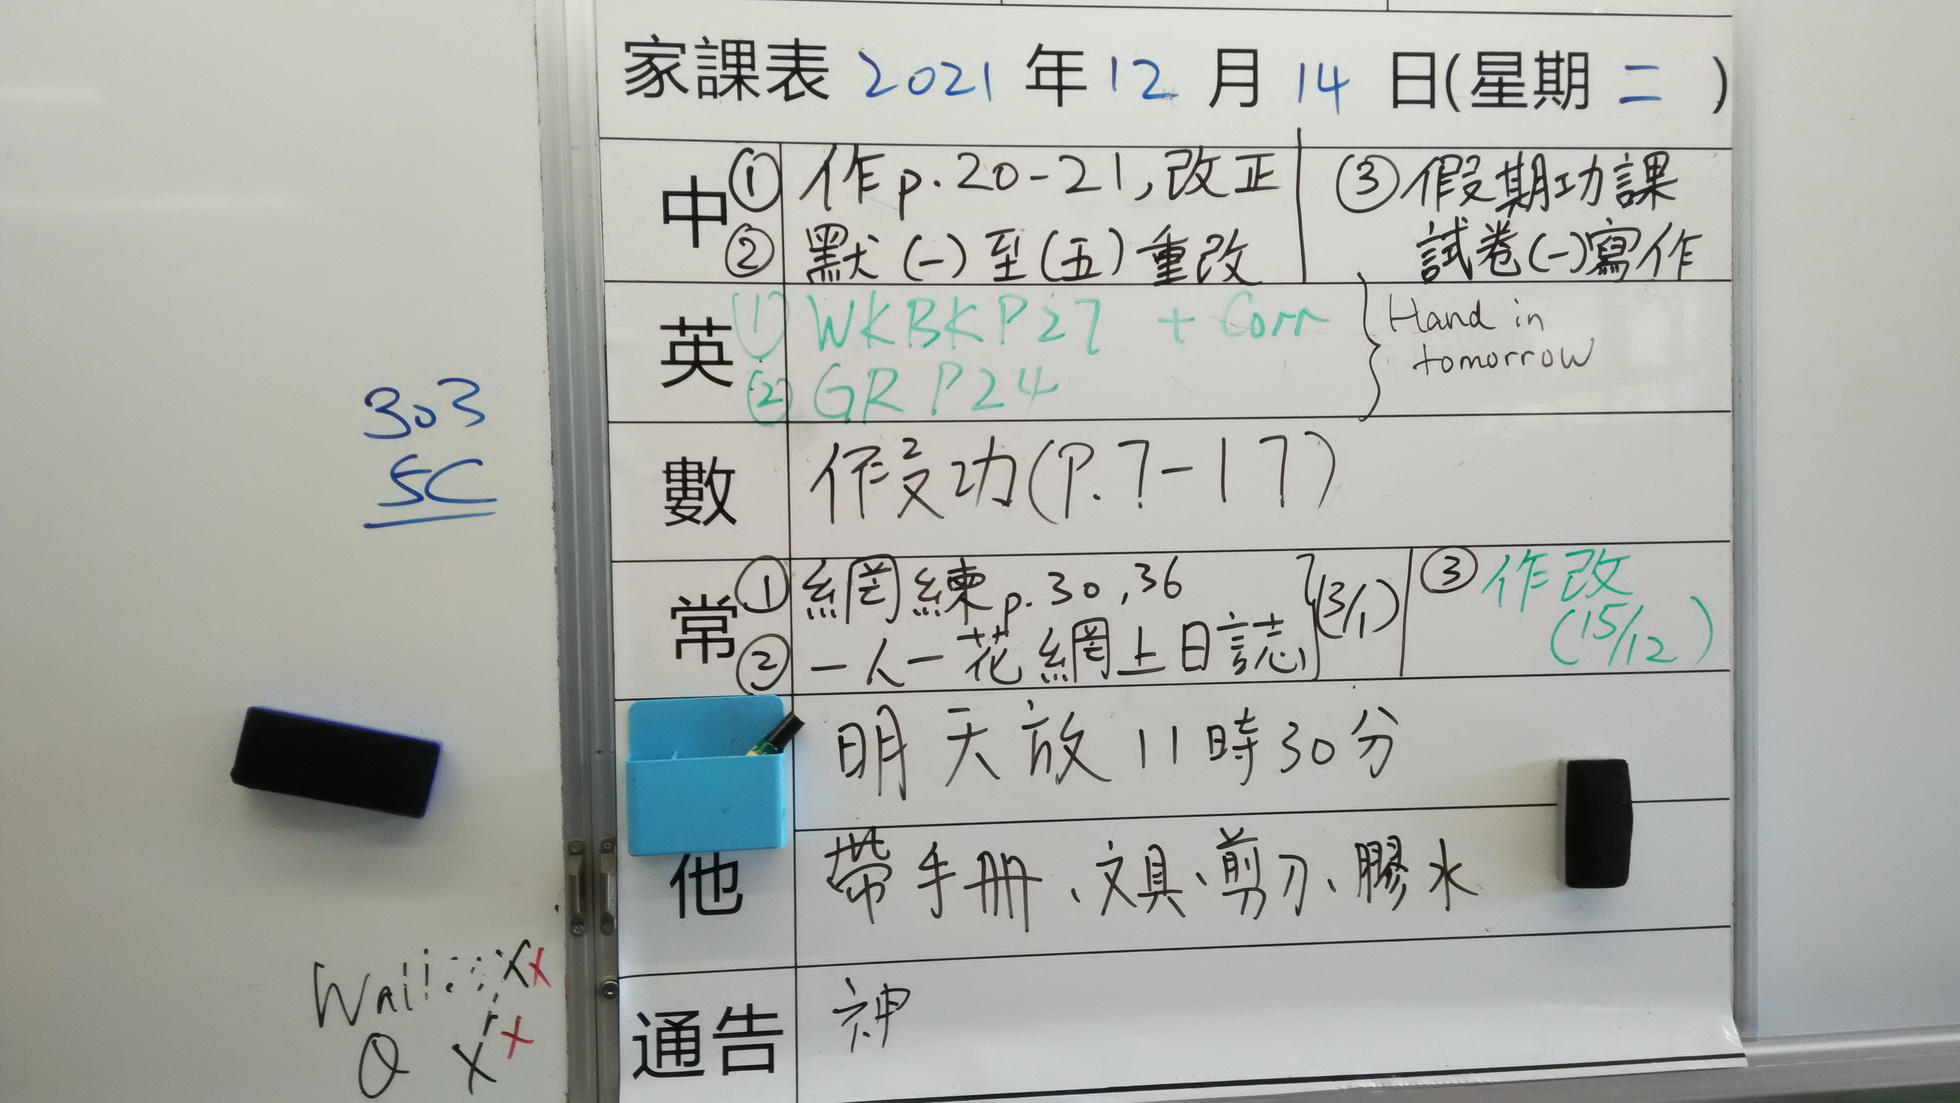 家課表 2021 年 12 月 14 日(星期 二 )
中 ① 作p.20-21,改正
② 默(一)至(五)重改
③ 假期功課
試卷(一)寫作
英 ① WKBKP27 + Corr
② GR P24
Hand in
tomorrow
數 假功(P.7-17)
常 ① 網練p.30,36
② 一人一花網上日誌
(3/1)
③ 作改
(15/12)
明天放11時30分
他 帶手冊、文具、剪刀、膠水
通告 神
303
5C